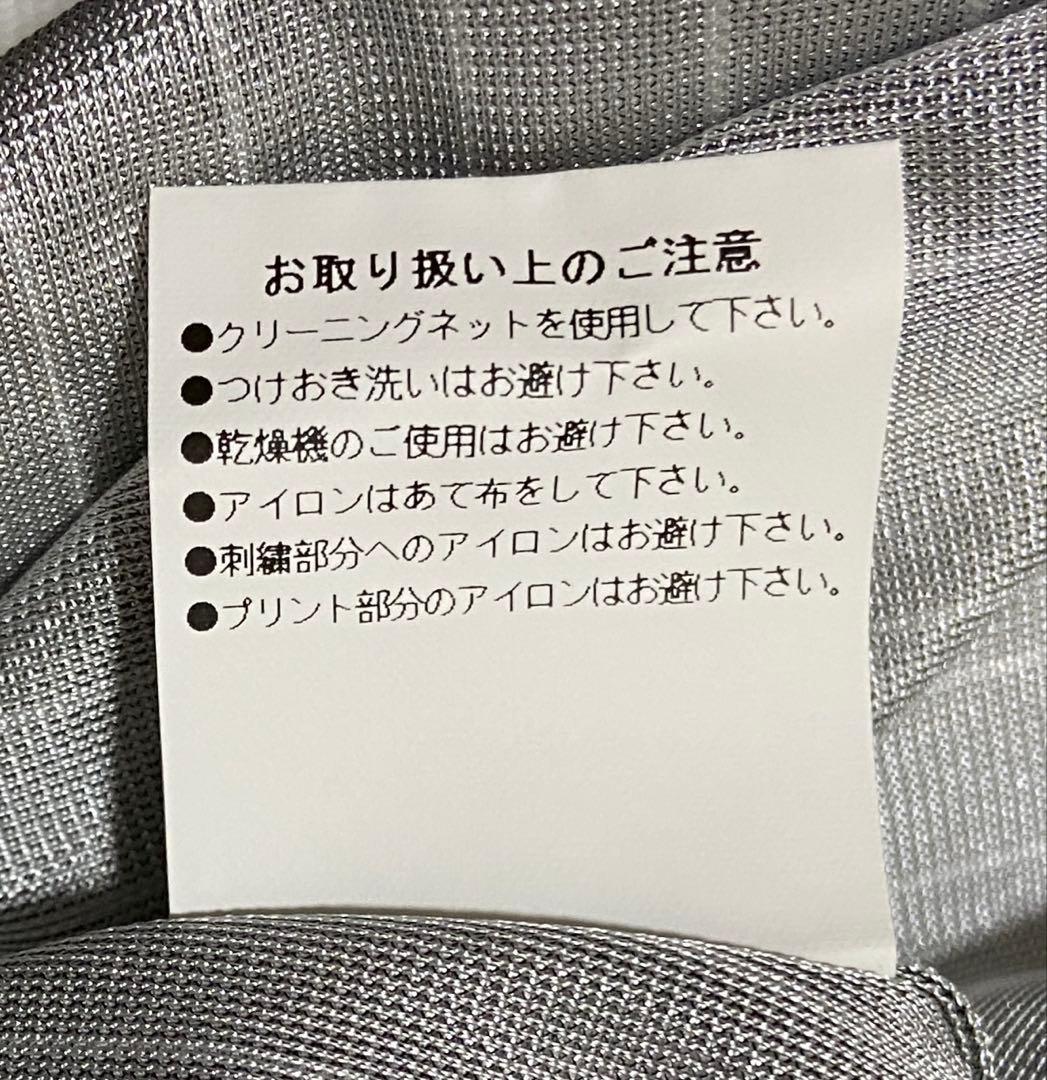 お取り扱い上のご注意
●クリーニングネットを使用して下さい。
●つけおき洗いはお避け下さい。
●乾燥機のご使用はお避け下さい。
●アイロンはあて布をして下さい。
●刺繍部分へのアイロンはお避け下さい。
●プリント部分のアイロンはお避け下さい。